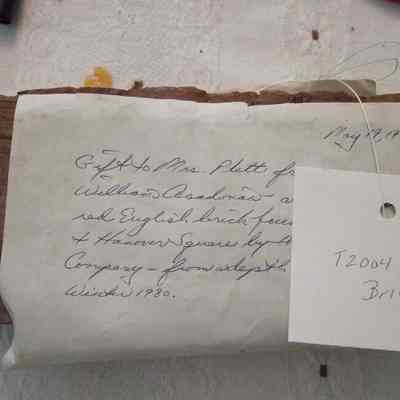 May 19, 19
Gift to Mrs. Plett
William
red English brick
& Hanover Square by
Company – from depth
Winter 1980.
T2004
Bri